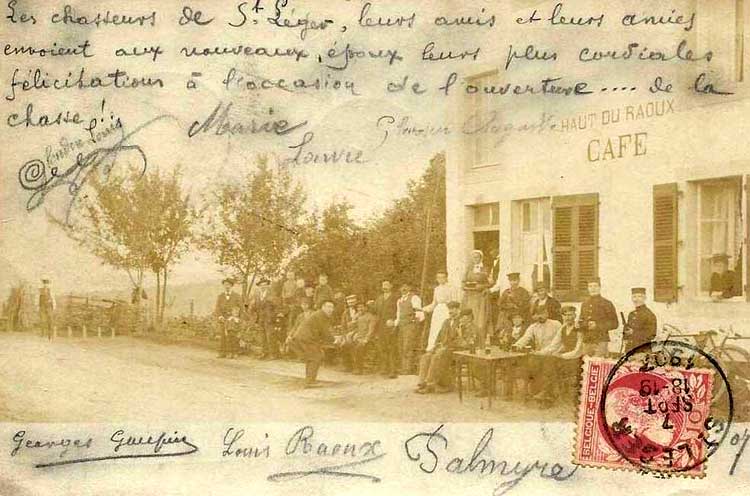 Les chasseurs de St Léger, leurs amis et leurs amies
envoient aux nouveaux, époux leurs plus cordiales
félicitations à l'occasion de l'ouverture .... de la
chasse!
Louis
Marie
HAUT DU RAOUX
CAFE
Georges
Louis Raoux
Palmyre
BELGIQUE-BELGIË
1907
18-19
SEPT
7
ST LE
07